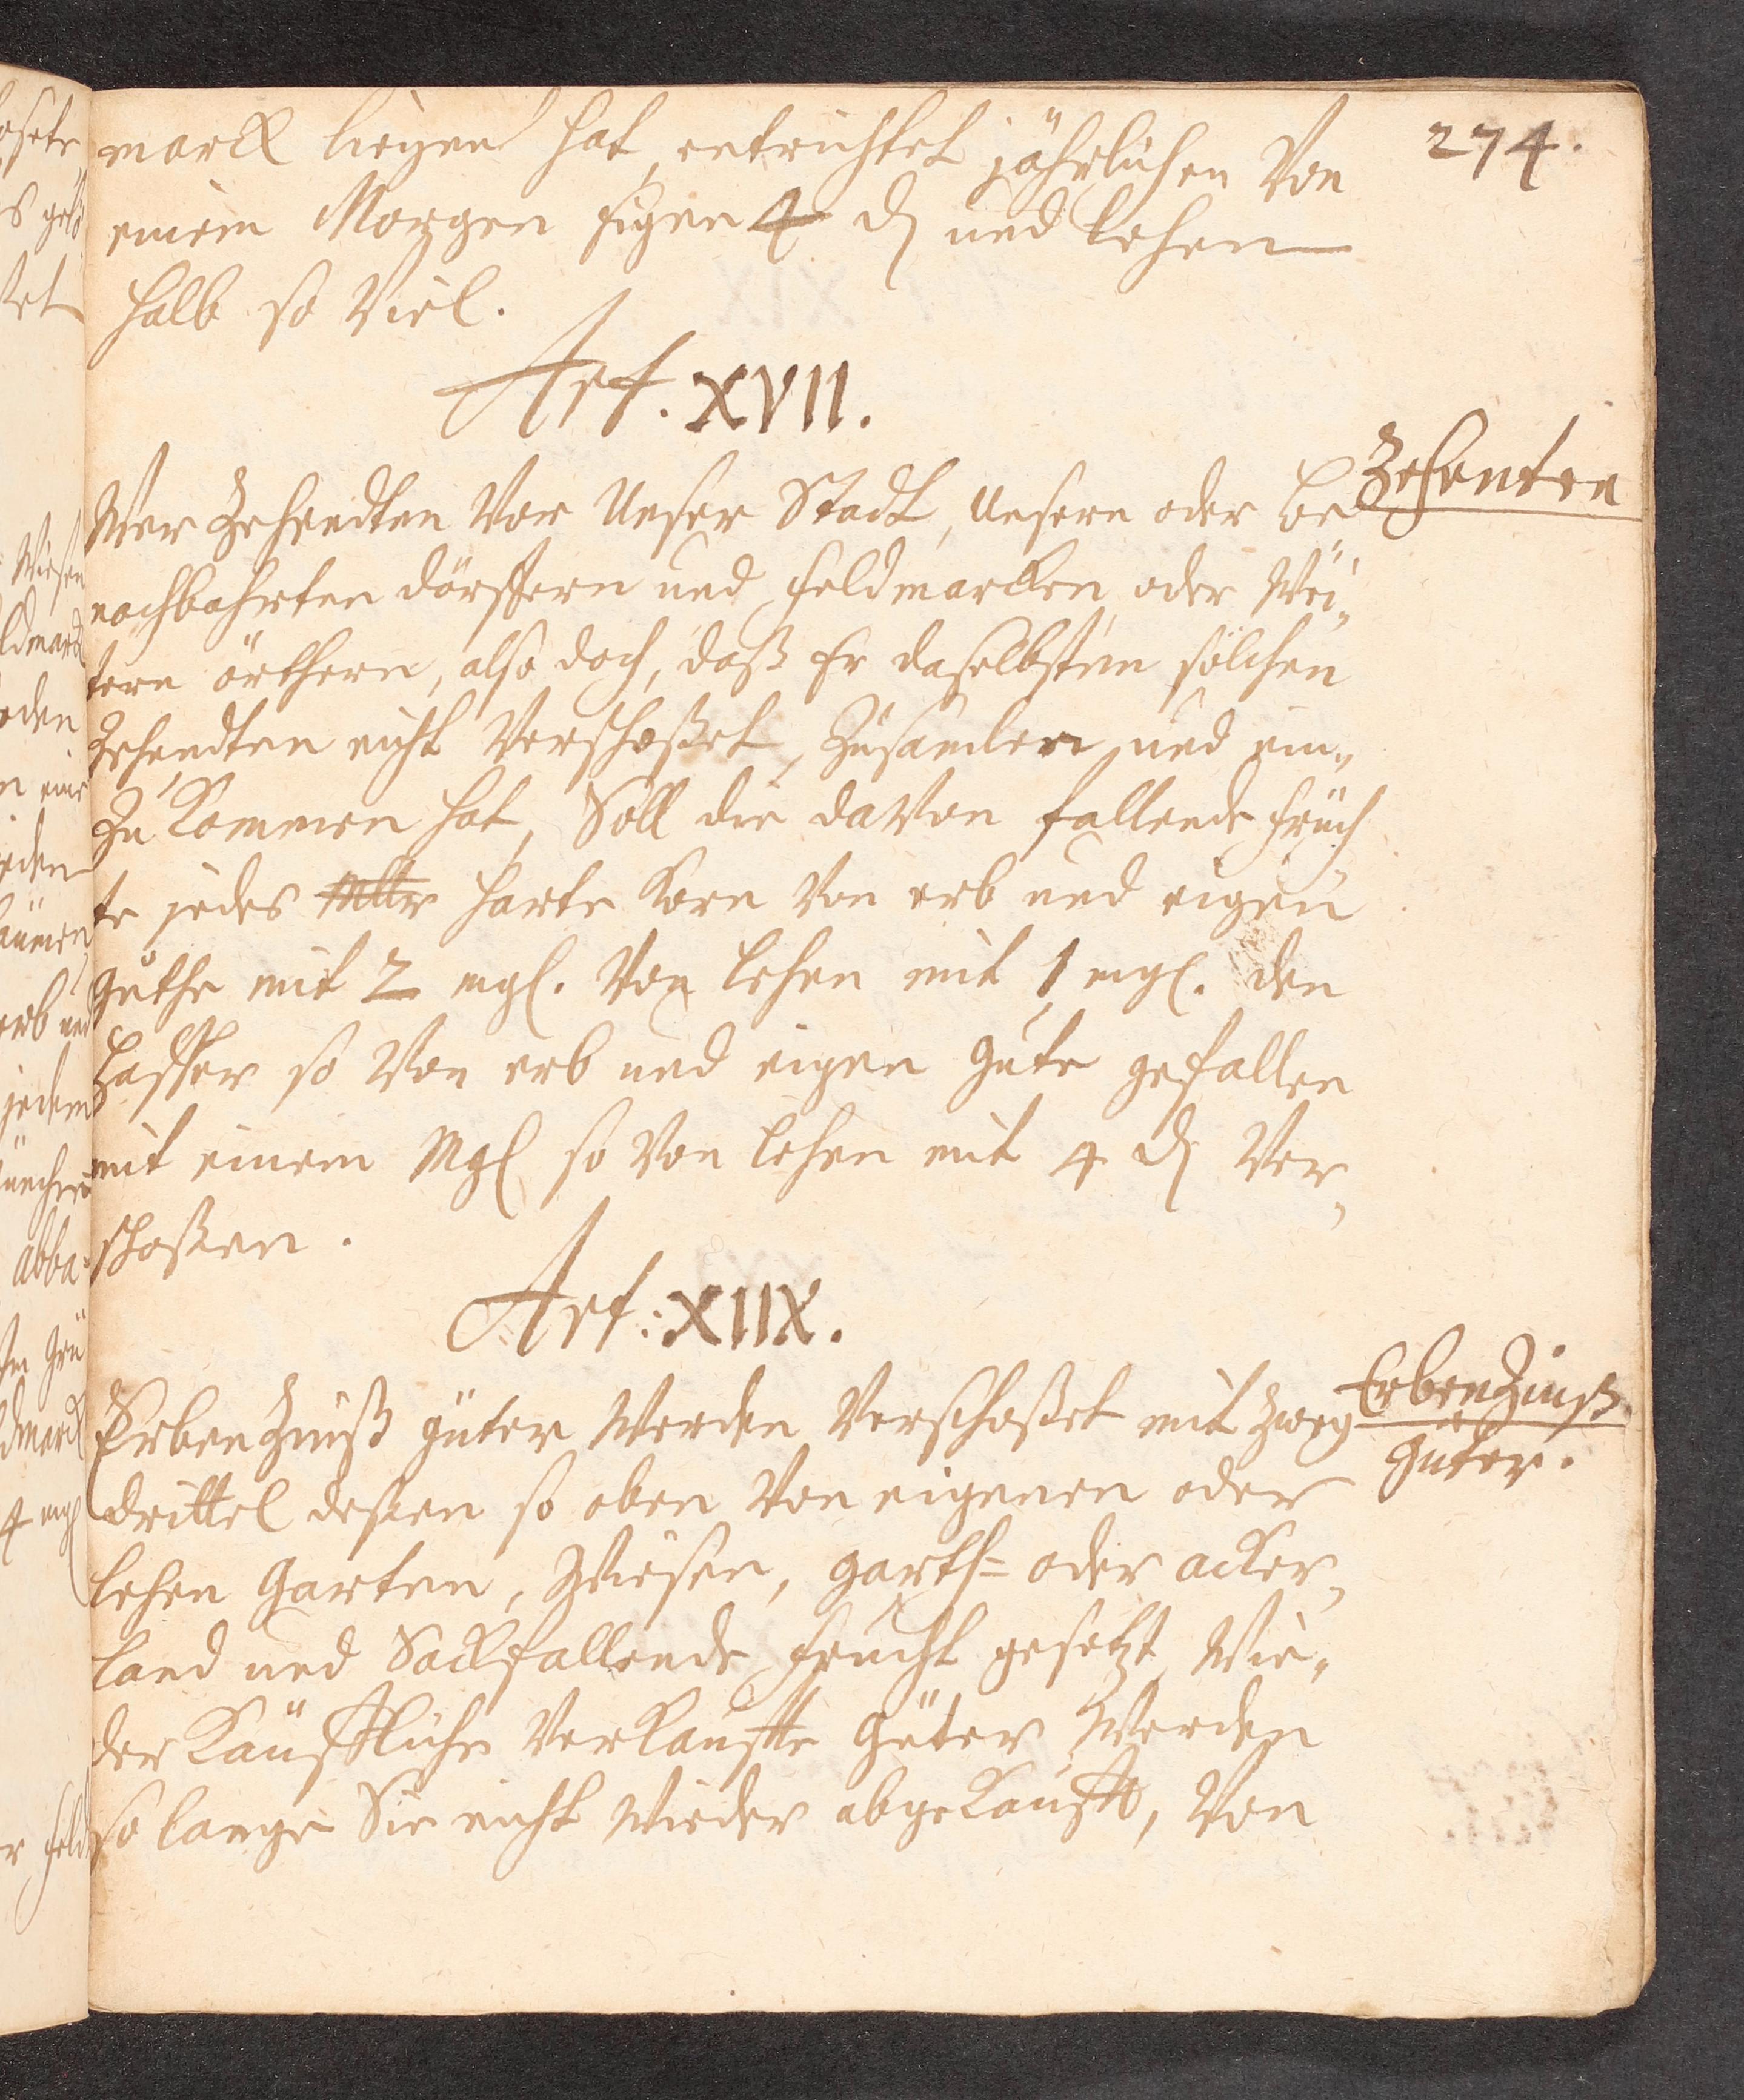 274.
marck liegen hat, entrichtet jährlichen Von
einem Morgen Eigen 4 d und Lehen
halb so Viel.
Art. XVII.
Zehenten
Wer Zehendten Vor Unser Stadt, Unsern oder be
nachbahrten dörffern und Feldmarcken oder Wei„
tern örthern, also doch, daß Er daselbsten solchen
Zehendten nicht Verschoßet, Zusamlen und ein„
Zu Kommen hat, Soll die davon fallende Früch
te jedes Mltr harte Korn Von erb und eigen
Guthe mit 2 mgl. Von Lehen mit 1 mgl. den
Haffer so Von erb und eigen Gute gefallen
mit einem Mgl so Von Lehen mit 4 d Ver„
schoßen.
Art: XIIX.
ErbenZinß
Güter.
ErbenZinß güter Werden Verschoßet mit Zwey
drittel deßen so oben Von eigenen oder
Lehen Garten, Wiesen, garth= oder acker„
Land und Sackfallende Frucht gesetzt, Wie„
der Käuffliche Verkauffte Güter Werden
so lange Sie nicht Wieder abgekaufft, Von